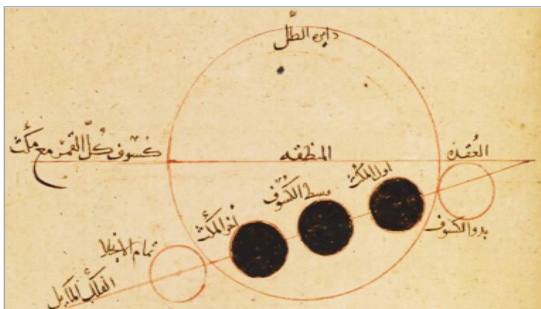 دايرة الظل
خسوف كل القمر مع مكث
المنطقة
العقدة
اول المكث
وسط الكسوف
اخر المكث
بدو الكسوف
تمام الانجلا
الفلك المايل